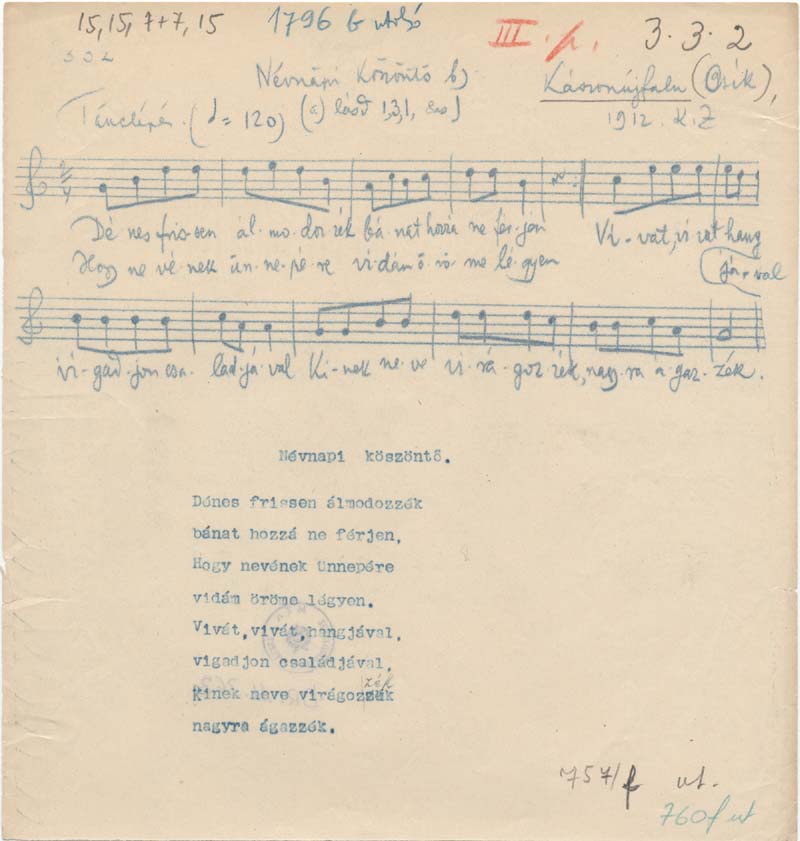 15, 15, 7+7, 15
1796 b utolsó
III. p.
3. 3. 2
332
Névnapi Köszöntő b)
Kászonújfalu (Csik),
1912. K. Z
Tánclépés. (♩= 120)
(a) lásd 1,3,1,
Dé-nes fris-sen ál-mo-doz-zék bá-nat hozzá ne fér-jen
Vi-vát, vi-vát hang
Hogy ne-vé-nek ün-ne-pé-re vi-dám ö-rö-me lé-gyen
já-val
vi-gad-jon csa-lád-já-val Ki-nek ne-ve vi-rá-goz-zék, nagy-ra á-gaz-zék.
Névnapi köszöntő.
Dénes frissen álmodozzék
bánat hozzá ne férjen,
Hogy nevének ünnepére
vidám öröme légyen.
Vivát,vivát,hangjával,
vigadjon családjával,
Kinek neve virágozzék
nagyra ágazzék.
757/f ut.
760f ut